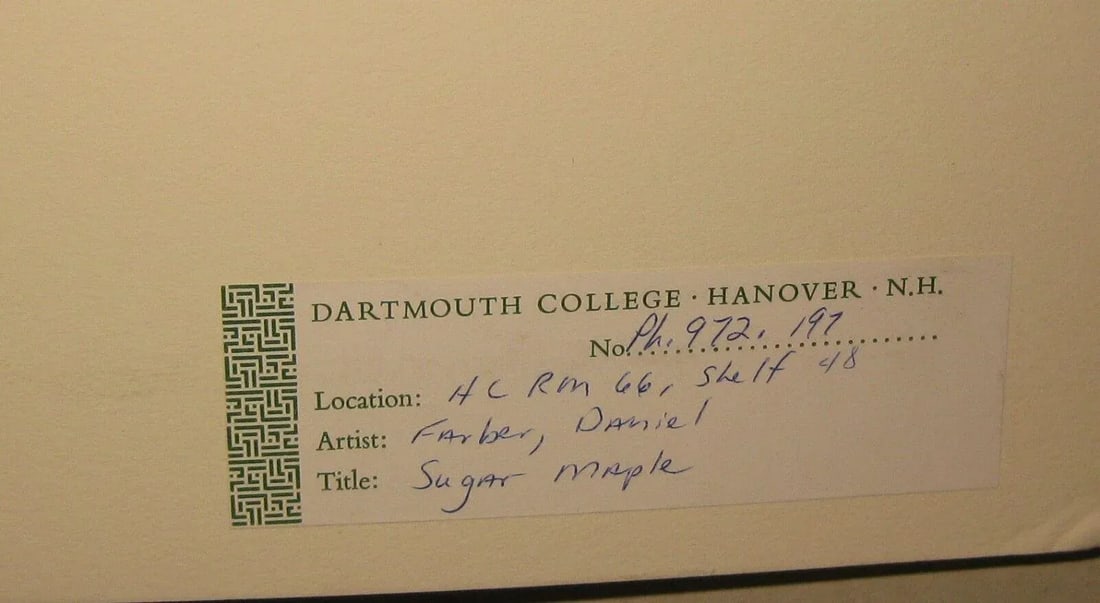 DARTMOUTH COLLEGE · HANOVER · N.H.
No. Ph. 972. 197
Location: HC Rm 66, Shelf 48
Artist: Farber, Daniel
Title: Sugar Maple